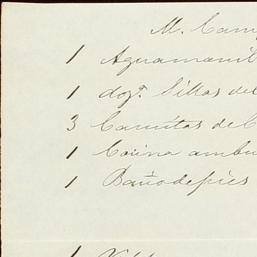 M. Cam
1 Aguamanil
1 dozª. Sillas de
3 Camitas de
1 Cocina ambu
1 Baño de pies
1